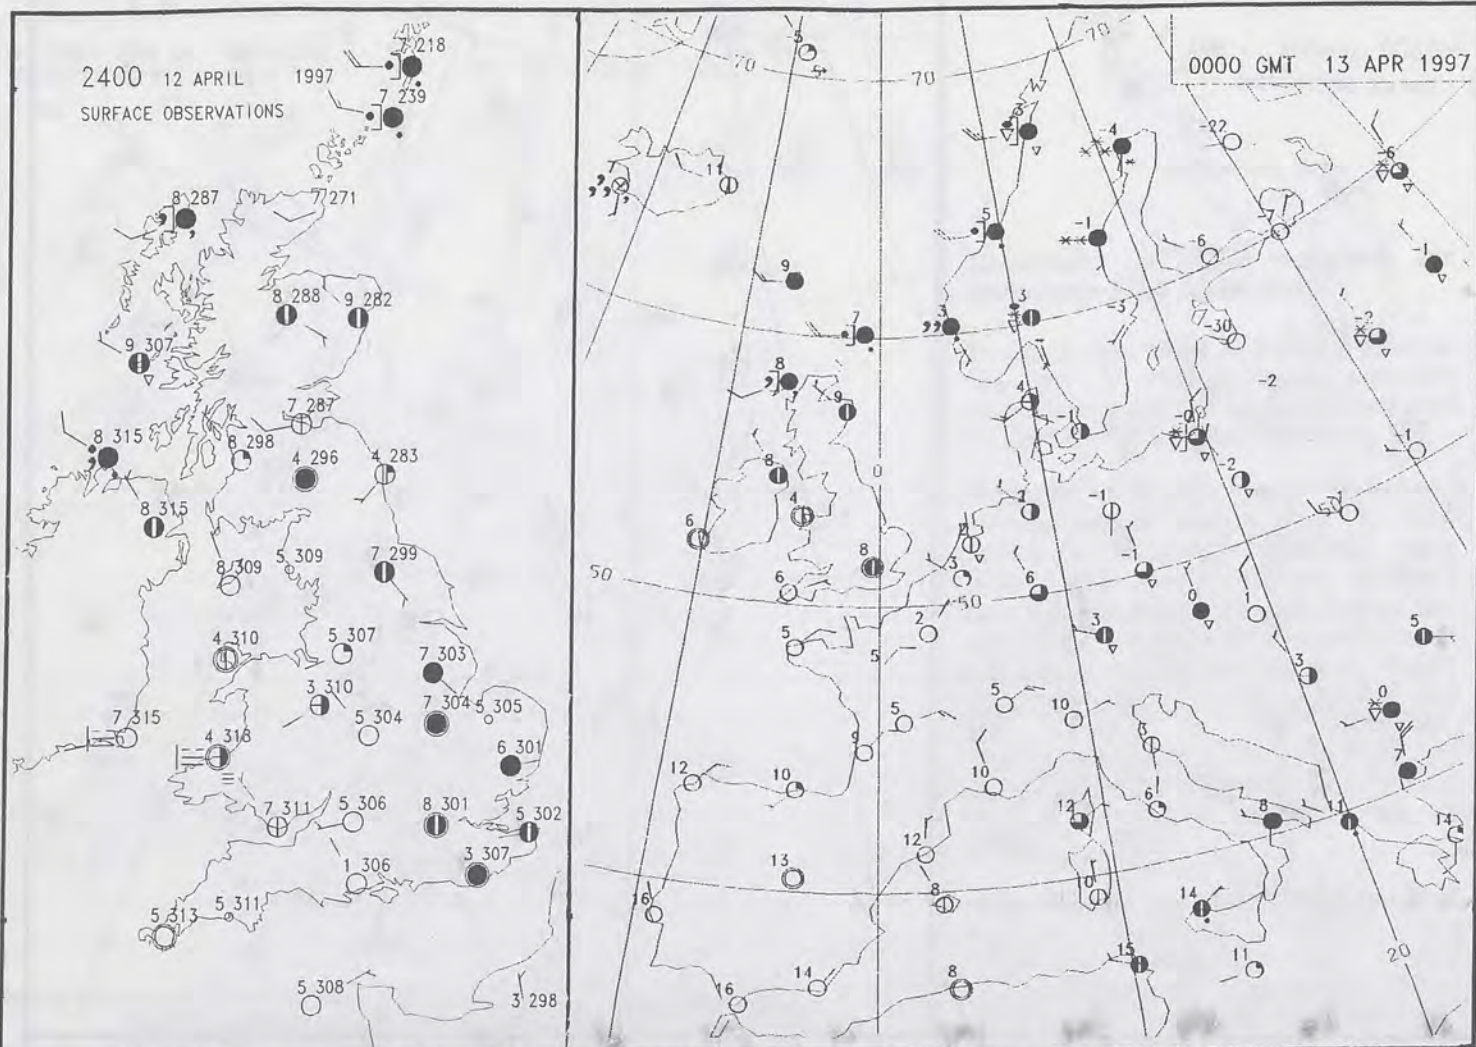 2400 12 APRIL 1997
SURFACE OBSERVATIONS
7 218
7 239
8 287
7 271
8 288
9 282
9 307
7 287
8 315
8 298
4 296
4 283
8 315
8 309
5 309
7 299
4 310
5 307
7 303
3 310
7 304
5 305
7 315
4 313
5 304
6 301
7 311
5 306
8 301
5 302
1 306
3 307
5 313
5 311
5 308
3 298
0000 GMT 13 APR 1997
5
70
70
70
-22
-3
-4
-6
7
11
5
-1
-7
-6
-1
9
3
3
-3
-30
-2
7
8
9
4
-1
-2
-0
-1
8
0
-2
6
4
2
-1
50
1
8
50
6
3
6
50
-1
0
1
5
2
5
3
5
3
5
5
10
0
9
3
7
12
10
10
12
6
8
11
14
12
13
8
0
16
14
15
11
20
14
8
16